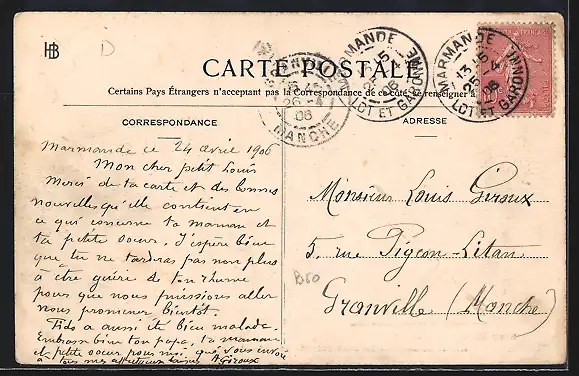 HB
D
CARTE POSTALE
Certains Pays Étrangers n'acceptant pas la Correspondance de ce côté, se renseigner à
CORRESPONDANCE
ADRESSE
MARMANDE
LOT ET GARONNE
MARMANDE
LOT ET GARONNE
MANCHE
Marmande ce 24 avril 1906
Mon cher petit Louis
Merci de ta carte et des bonnes
nouvelles qu'elle contient en
ce qui concerne ta maman et
ta petite soeur. J'espère bien
que tu ne tarderas pas non plus
à être guéri de ton rhume
pour que nous puissions aller
nous promener bientôt.
Fido a aussi été bien malade.
Embrasse bien ton papa, ta maman
et petite soeur pour moi, qui vous envoie
à tous mes affectueux baisers Giroux
Monsieur Louis Giroux
5, rue Pigeon-Litan
Granville (Manche)
B50